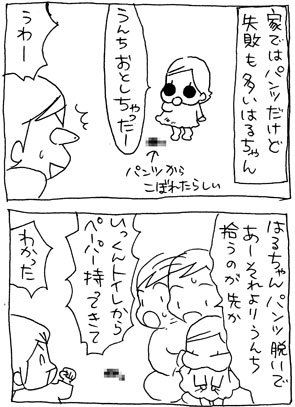 家ではパンツだけど
失敗も多いはるちゃん
うんち おとしちゃったー
パンツから
こぼれたらしい
うわー
はるちゃん パンツ脱いで
あーそれよりうんち
拾うのが先か
いっくんトイレから
ペーパー持ってきて
わかった